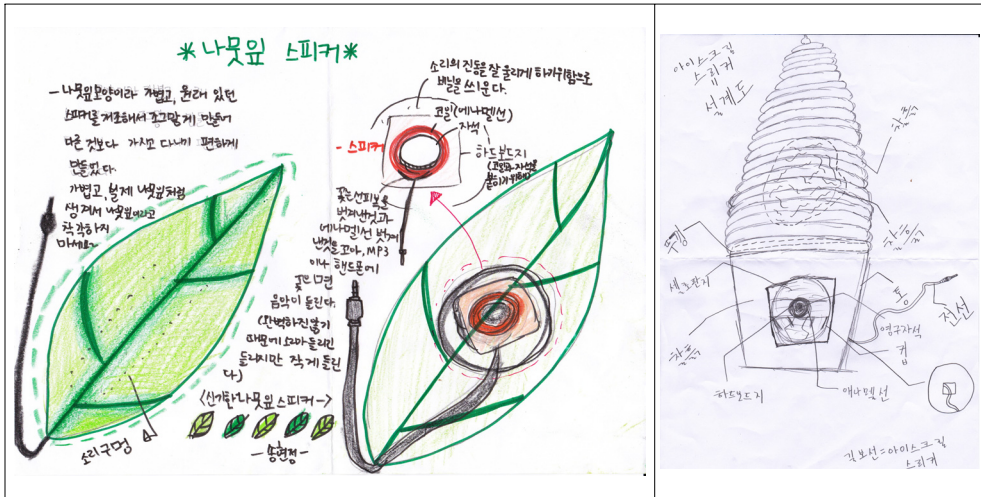 *나뭇잎 스피커*
- 나뭇잎모양이라 가볍고, 원래 있던
스피커를 개조해서 조그맣게 만들어
다른 것보다 가지고 다니기 편하게
만들었다.
가볍고, 실제 나뭇잎처럼
생겨서 나뭇잎이라고
착각하지
마세요~
소리구멍
소리의 진동을 잘 울리게 하기위함으로
비닐을 씌운다.
코일(에나멜선)
자석
- 스피커
하드보드지
(코일과 자석을
붙이기위해)
꽂는선피복을
벗겨낸것과
에나멜선 벗겨
낸것을 꼬아, MP3
이나 핸드폰에
꽂으면
음악이 들린다.
(완벽하진않기
때문에 소리가 들리긴
들리지만 작게 들린
다)
<신기한나뭇잎스피커->
-송현정-
아이스크림
스피커
설계도
뚜껑
셀로판지
하드보드지
애나멜선
컵
영구자석
통
전선
김보선=아이스크림
스피커